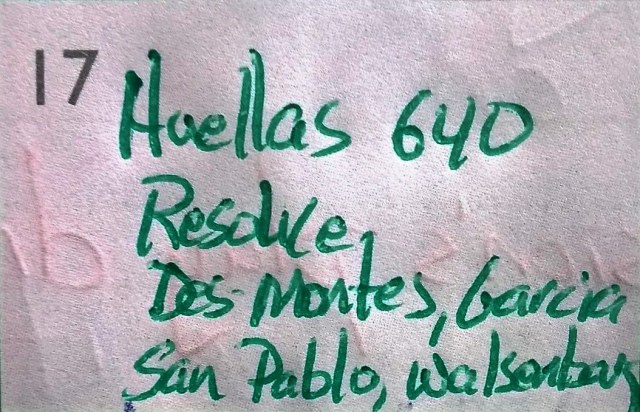 17 Huellas 640
Resolve
Des Montes, Garcia
San Pablo, Walsenburg